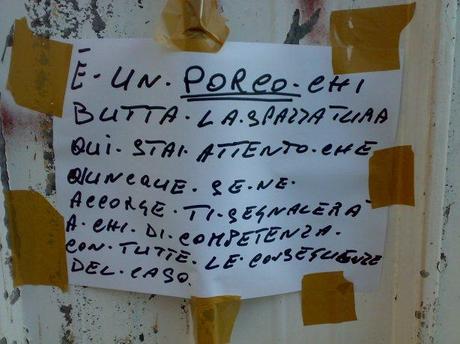 E·UN·PORCO·CHI
BUTTA·LA·SPAZZATURA
QUI·STAI·ATTENTO·CHE
QUNCQUE·SE·NE·
ACCORGE·TI·SEGNALERA'
A·CHI·DI·COMPETENZA·
CON·TUTTE·LE·CONSEGUENZE
DEL·CASO.